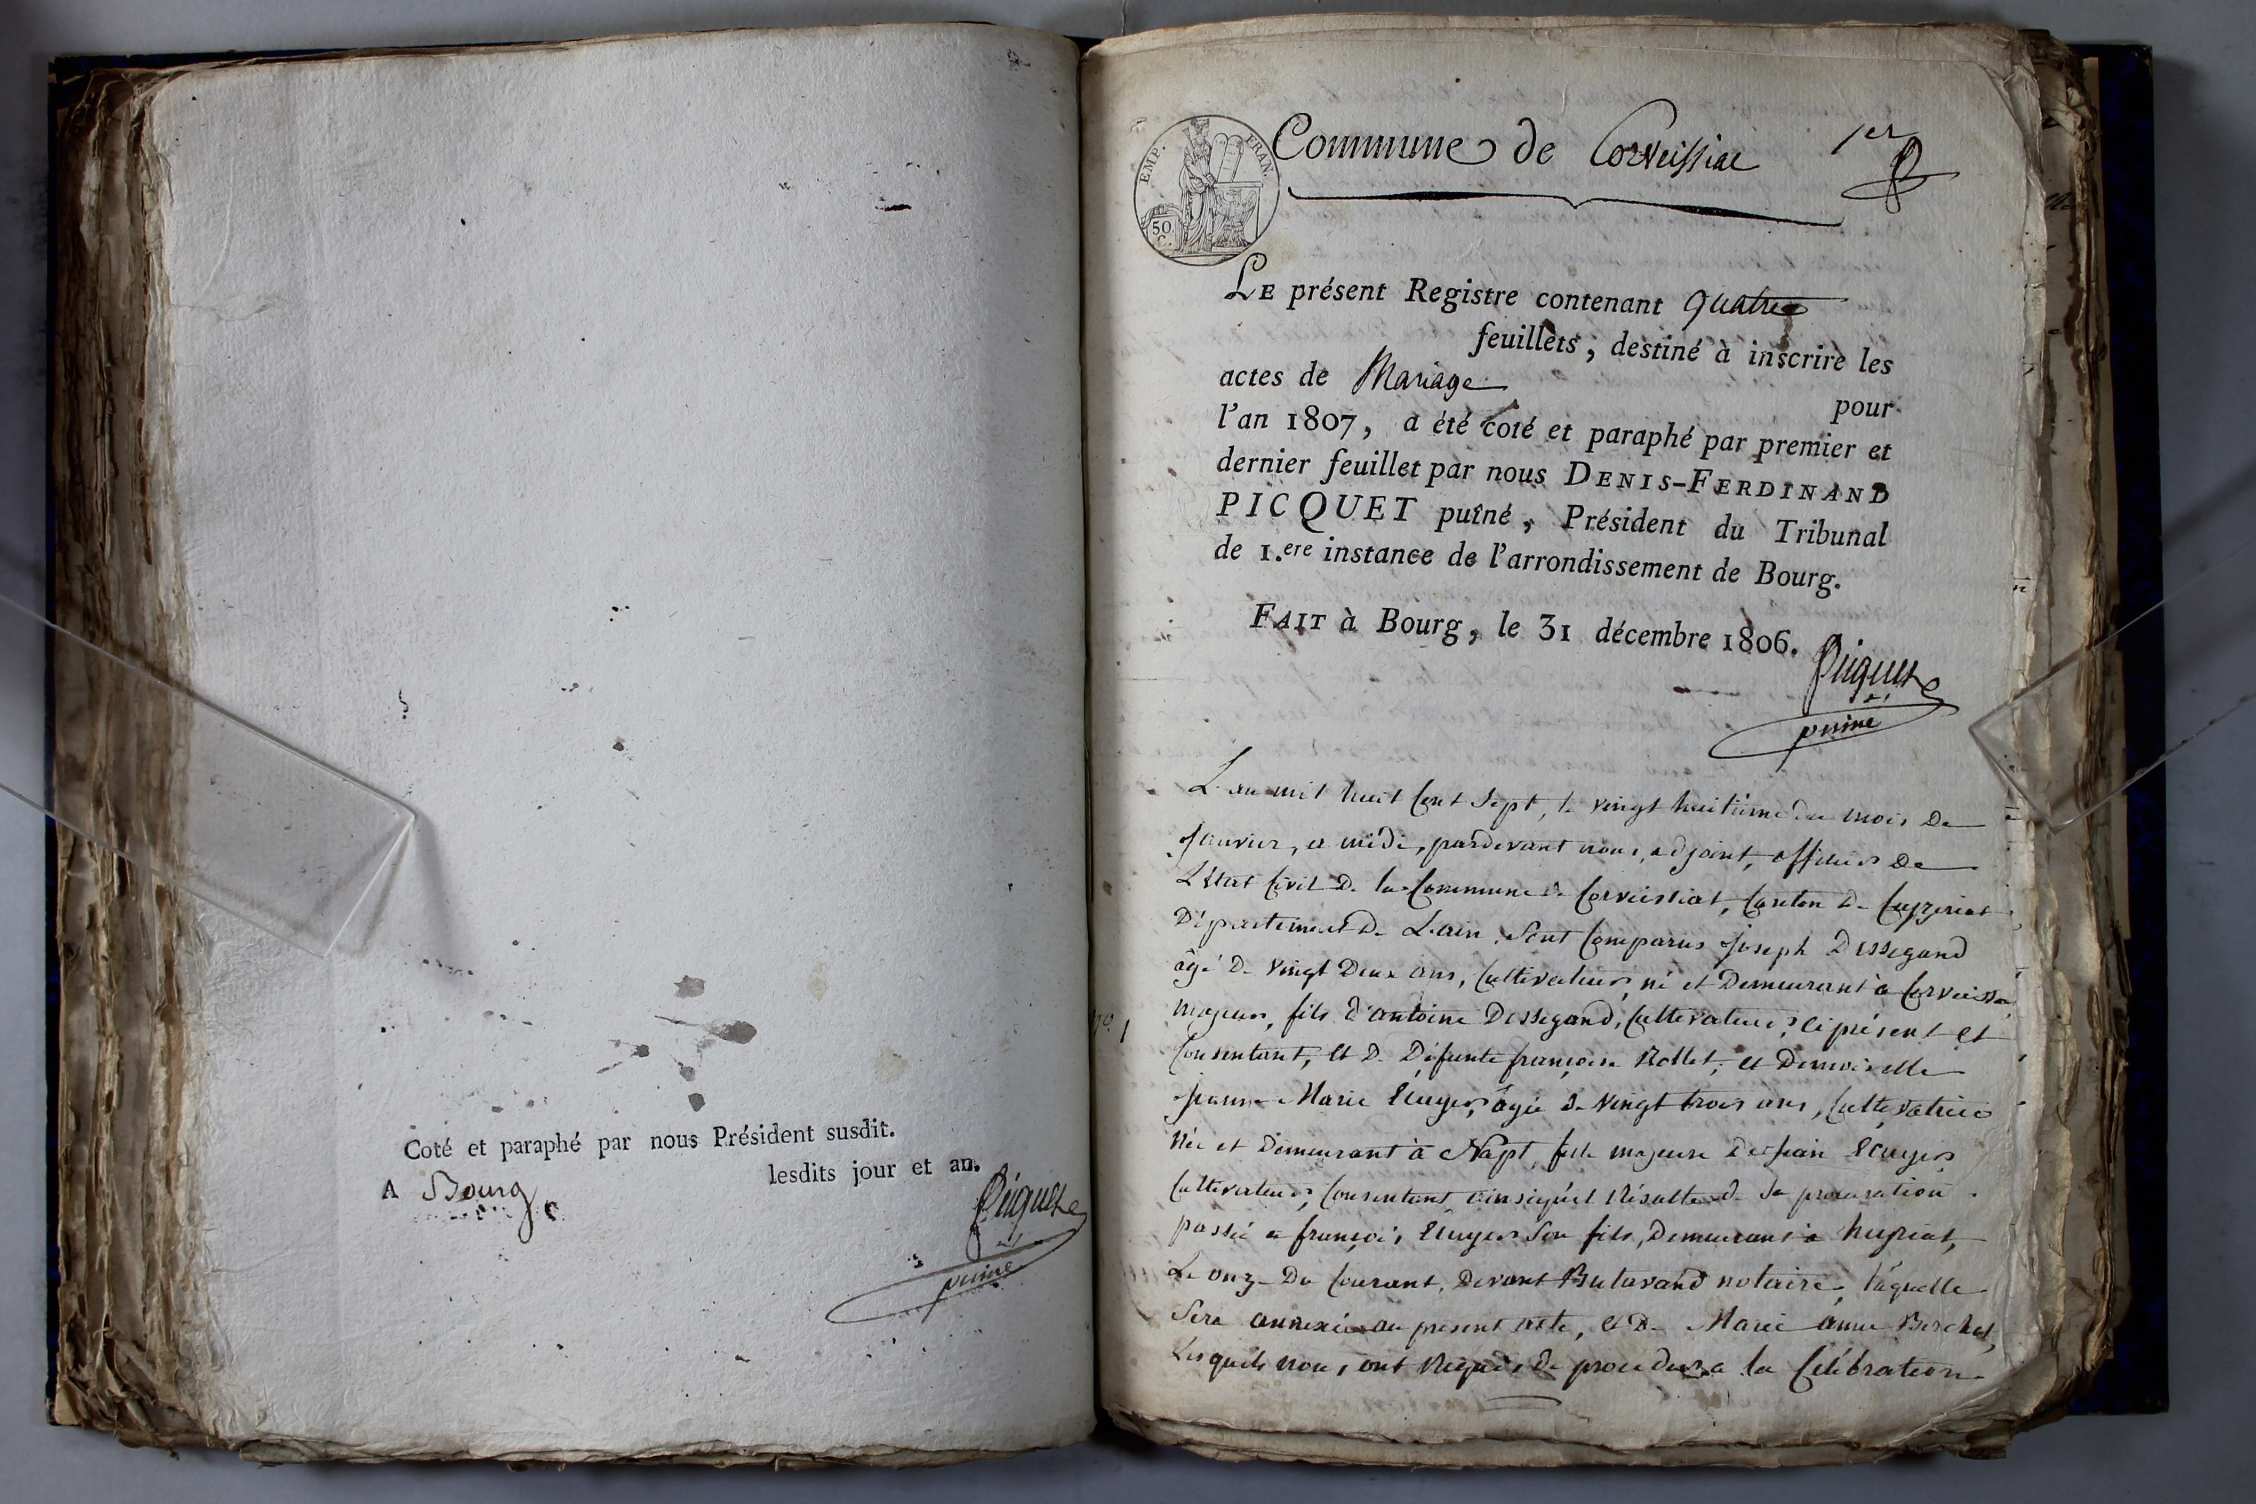 Coté et paraphé par nous Président susdit.
A Bourg lesdits jour et an.
Picquet
puîné
EMP. FRAN.
50 C.
Commune de Corveissiat
1er
LE présent Registre contenant quatre
feuillets, destiné à inscrire les
actes de Mariage pour
l'an 1807, a été coté et paraphé par premier et
dernier feuillet par nous DENIS-FERDINAND
PICQUET puîné, Président du Tribunal
de 1.ere instance de l'arrondissement de Bourg.
FAIT à Bourg, le 31 décembre 1806.
Picquet
puîné
L'an mil huit Cent Sept, le vingt huitième du mois De
Janvier, a midi, pardevant nous, adjoint, officier De
L'Etat Civil De la Commune de Corveissiat, Canton De Ceyzeriat
Département De L'ain, Sont Comparus Joseph Dessegand
âgé De Vingt Deux ans, Cultivateur, né et Demeurant à Corveissia
No. 1
Majeur, fils d'antoine Dessegand, Cultivateur, ci présent et
Consentant, et De Défunte françoise Rollet, et Demoiselle
Jeanne Marie Ecuyer, âgée de Vingt trois ans, Cultivatrice
Née et Demeurant à Napt, fille majeure De Jean Ecuyer
Cultivateur, Consentant ainsi qu'il Résulte de Sa procuration
passée a françois Ecuyer Son fils, Demeurant a
Le onze Du Courant, Devant Butavand notaire, laquelle
Sera annexée au présent acte, et De Marie anne Berchet,
Lesquels nous ont Requis de proceder a la Célébration